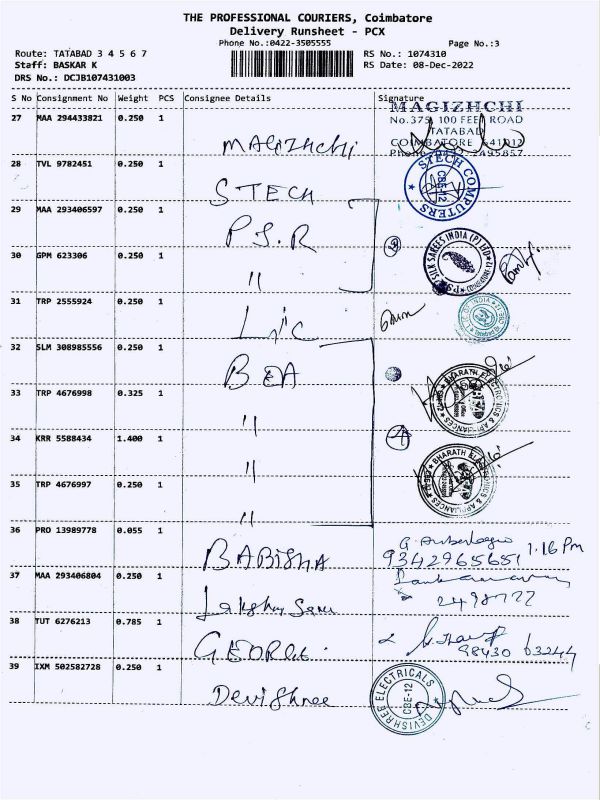 THE PROFESSIONAL COURIERS, Coimbatore
Delivery Runsheet - PCX
Phone No.:0422-3505555 Page No.:3
Route: TATABAD 3 4 5 6 7 RS No.: 1074310
Staff: BASKAR K RS Date: 08-Dec-2022
DRS No.: DCJB107431003
S No Consignment No Weight PCS Consignee Details Signature
27 MAA 294433821 0.250 1 MAGIZHCHI
MAGIZHCHI
No.375, 100 FEET ROAD
TATABAD
COIMBATORE 641012
Phone 2495857
28 TVL 9782451 0.250 1 STECH
STECH COMPUTERS
CBE-12
29 MAA 293406597 0.250 1 P.S.R
PSR SILK SAREES INDIA (P) LTD
30 GPM 623306 0.250 1 "
31 TRP 2555924 0.250 1 Lic
32 SLM 308985556 0.250 1 BEA
33 TRP 4676998 0.325 1 "
BHARATH ELECTRONICS & APPLIANCES
34 KRR 5588434 1.400 1 "
BHARATH ELECTRONICS & APPLIANCES
35 TRP 4676997 0.250 1 "
36 PRO 13989778 0.055 1 BABISHA
9342965651 1.16 Pm
37 MAA 293406804 0.250 1
38 TUT 6276213 0.785 1 GEORGE
98430 63244
39 IXM 502582728 0.250 1 Devishree
DEVISHREE ELECTRICALS
CBE-12